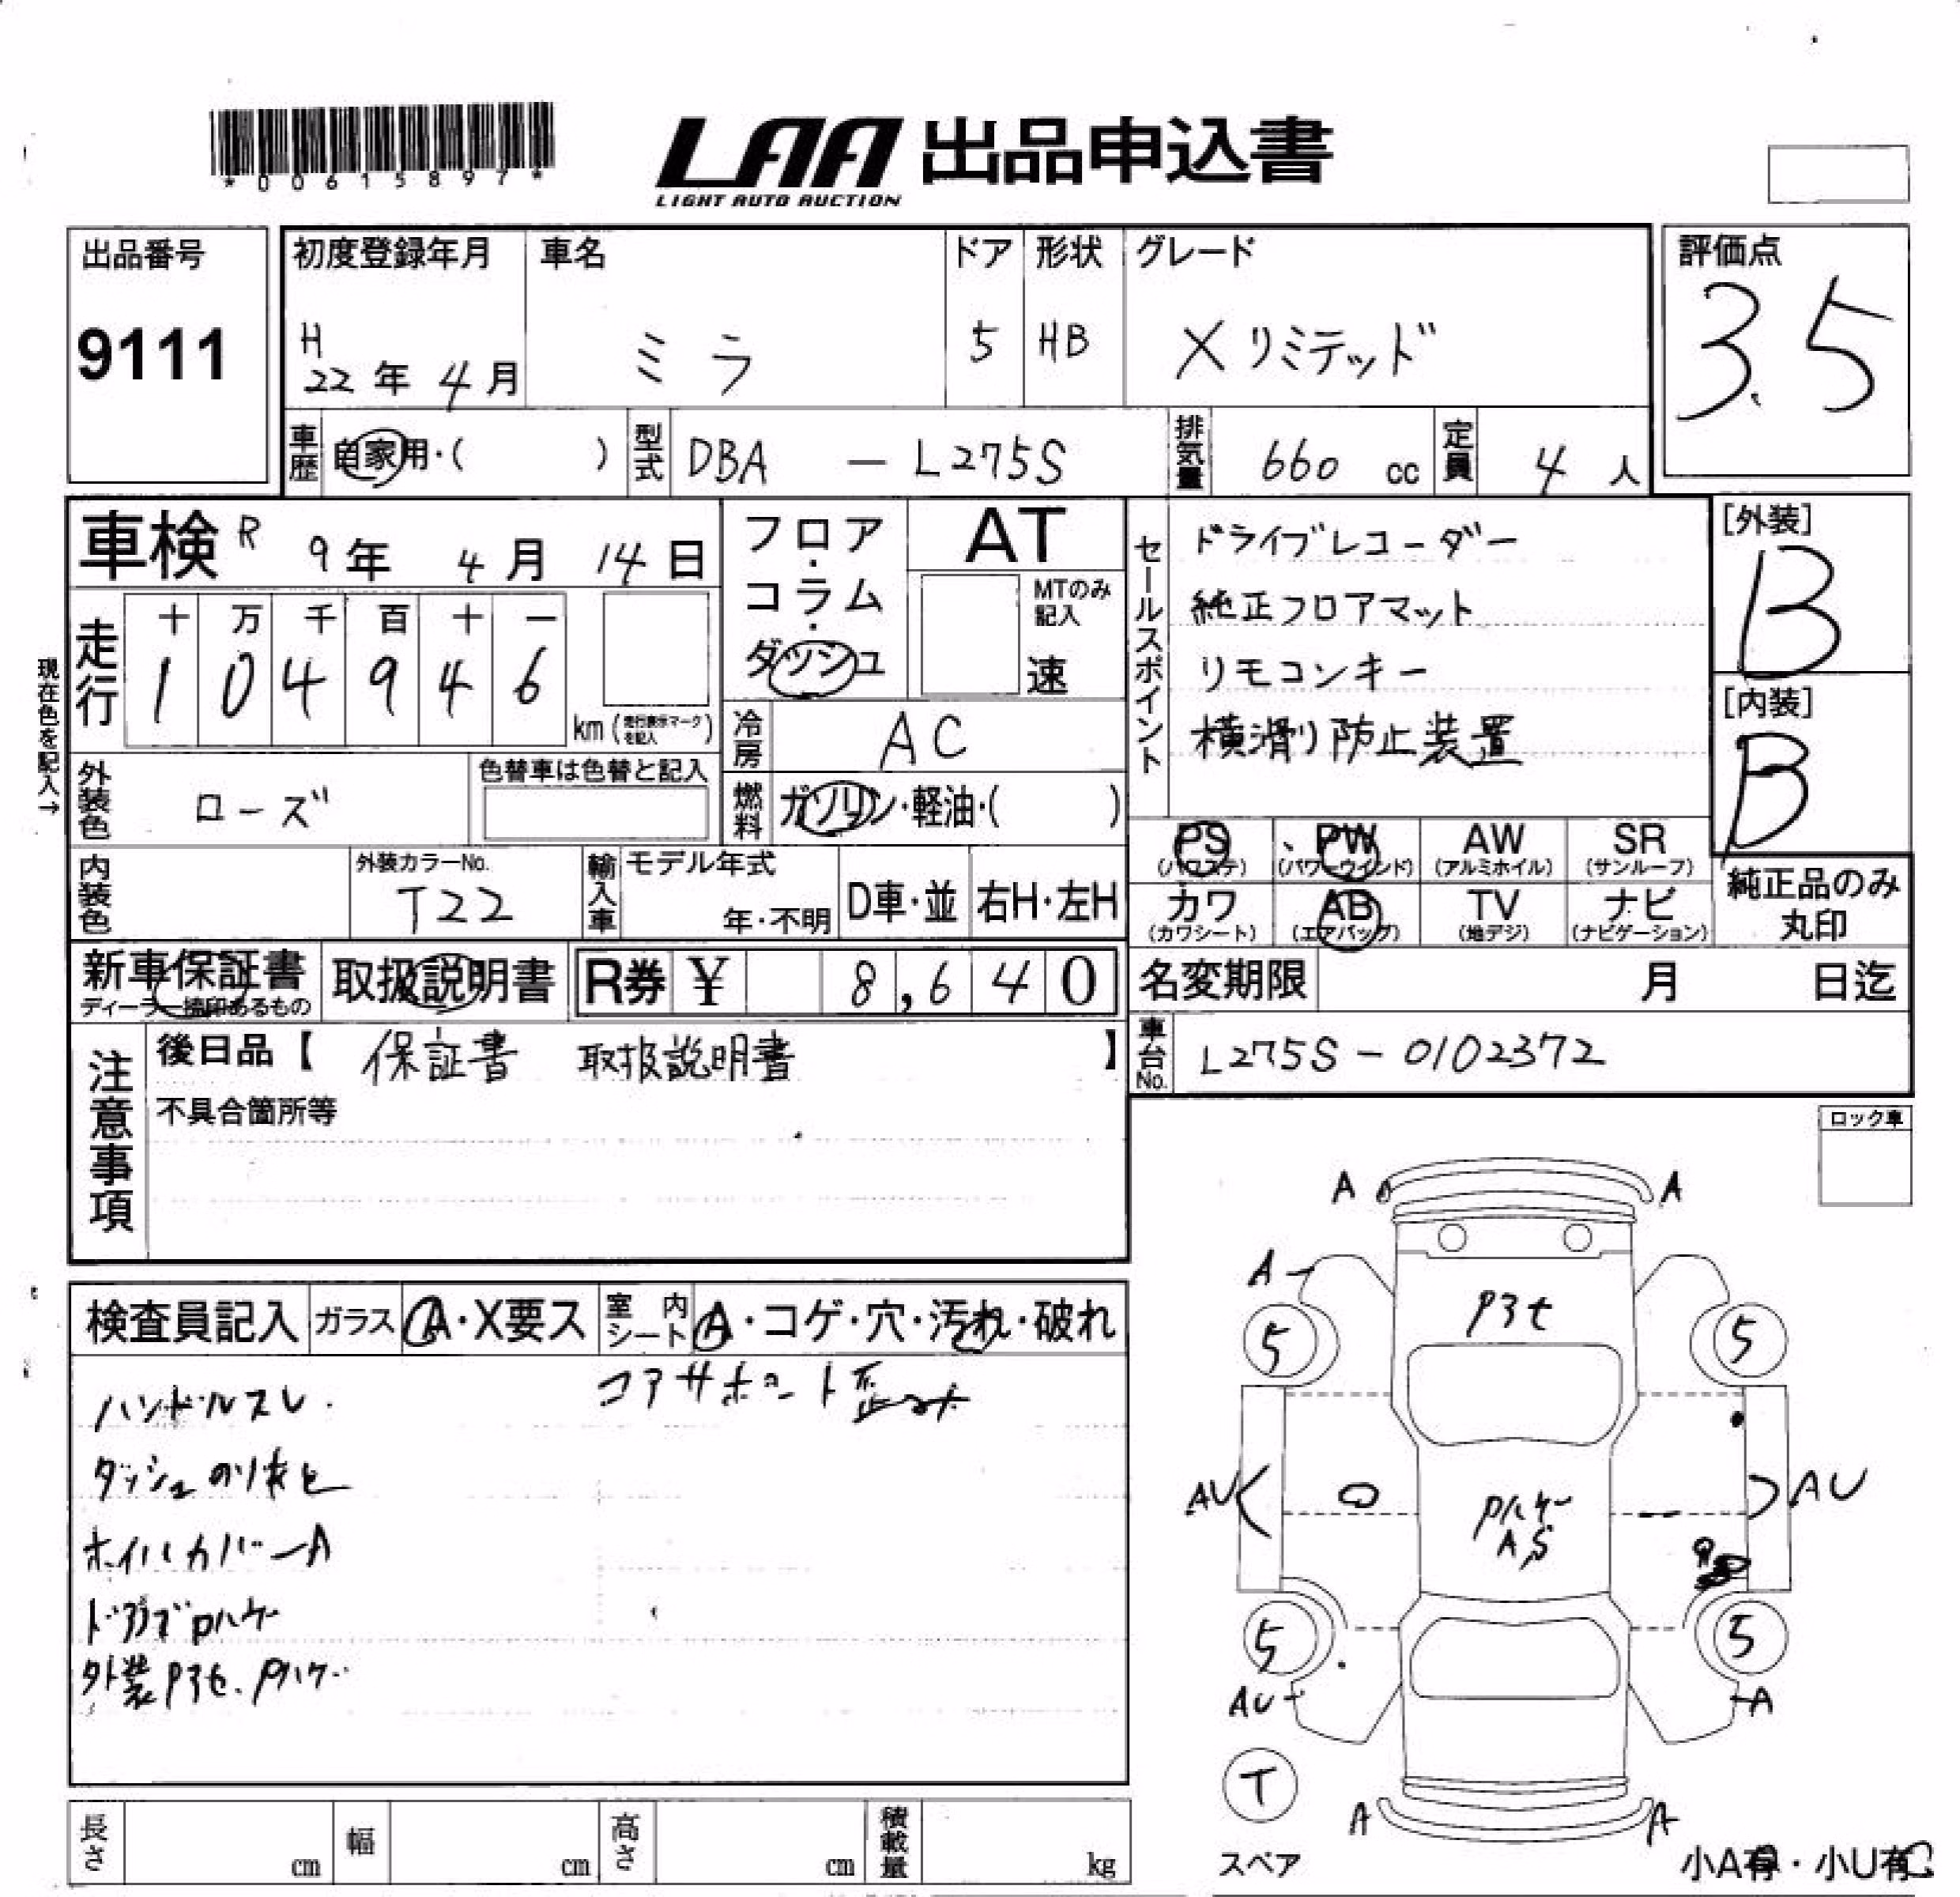 *00615897*
LAA 出品申込書
LIGHT AUTO AUCTION
出品番号
9111
初度登録年月
H
22年 4月
車名
ミラ
ドア
5
形状
HB
グレード
Xリミテッド
評価点
3.5
車歴
自家用・( )
型式
DBA - L275S
排気量
660 cc
定員
4 人
車検 R 9年 4月 14日
走行
十 万 千 百 十 一
1 0 4 9 4 6
km(走行表示マークを記入)
現在色を記入→
フロア・コラム・ダッシュ
AT
MTのみ記入
速
冷房
AC
燃料
ガソリン・軽油・( )
外装色
ローズ
色替車は色替と記入
内装色
外装カラーNo.
T22
輸入車
モデル年式
年・不明
D車・並
右H・左H
セールスポイント
ドライブレコーダー
純正フロアマット
リモコンキー
横滑り防止装置
[外装]
B
[内装]
B
PS
(パワステ)
PW
(パワーウインド)
AW
(アルミホイル)
SR
(サンルーフ)
カワ
(カワシート)
AB
(エアバッグ)
TV
(地デジ)
ナビ
(ナビゲーション)
純正品のみ
丸印
新車保証書
ディーラー捺印あるもの
取扱説明書
R券 ¥ 8,640
名変期限 月 日迄
注意事項
後日品【 保証書 取扱説明書 】
不具合箇所等
車台No.
L275S-0102372
ロック車
検査員記入
ガラス
A・X要ス
室内シート
A・コゲ・穴・汚れ・破れ
ハンドルスレ
コアサポート歪み
ダッシュのり光と
ホイルカバーA
Pハゲ
外装Pアセ、Pハゲ
A A
A
Pアセ
5 5
AU AU
Pハゲ
AS
5 5
AU A
T
スペア
A A
小A有・小U有
長さ cm
幅 cm
高さ cm
積載量 kg